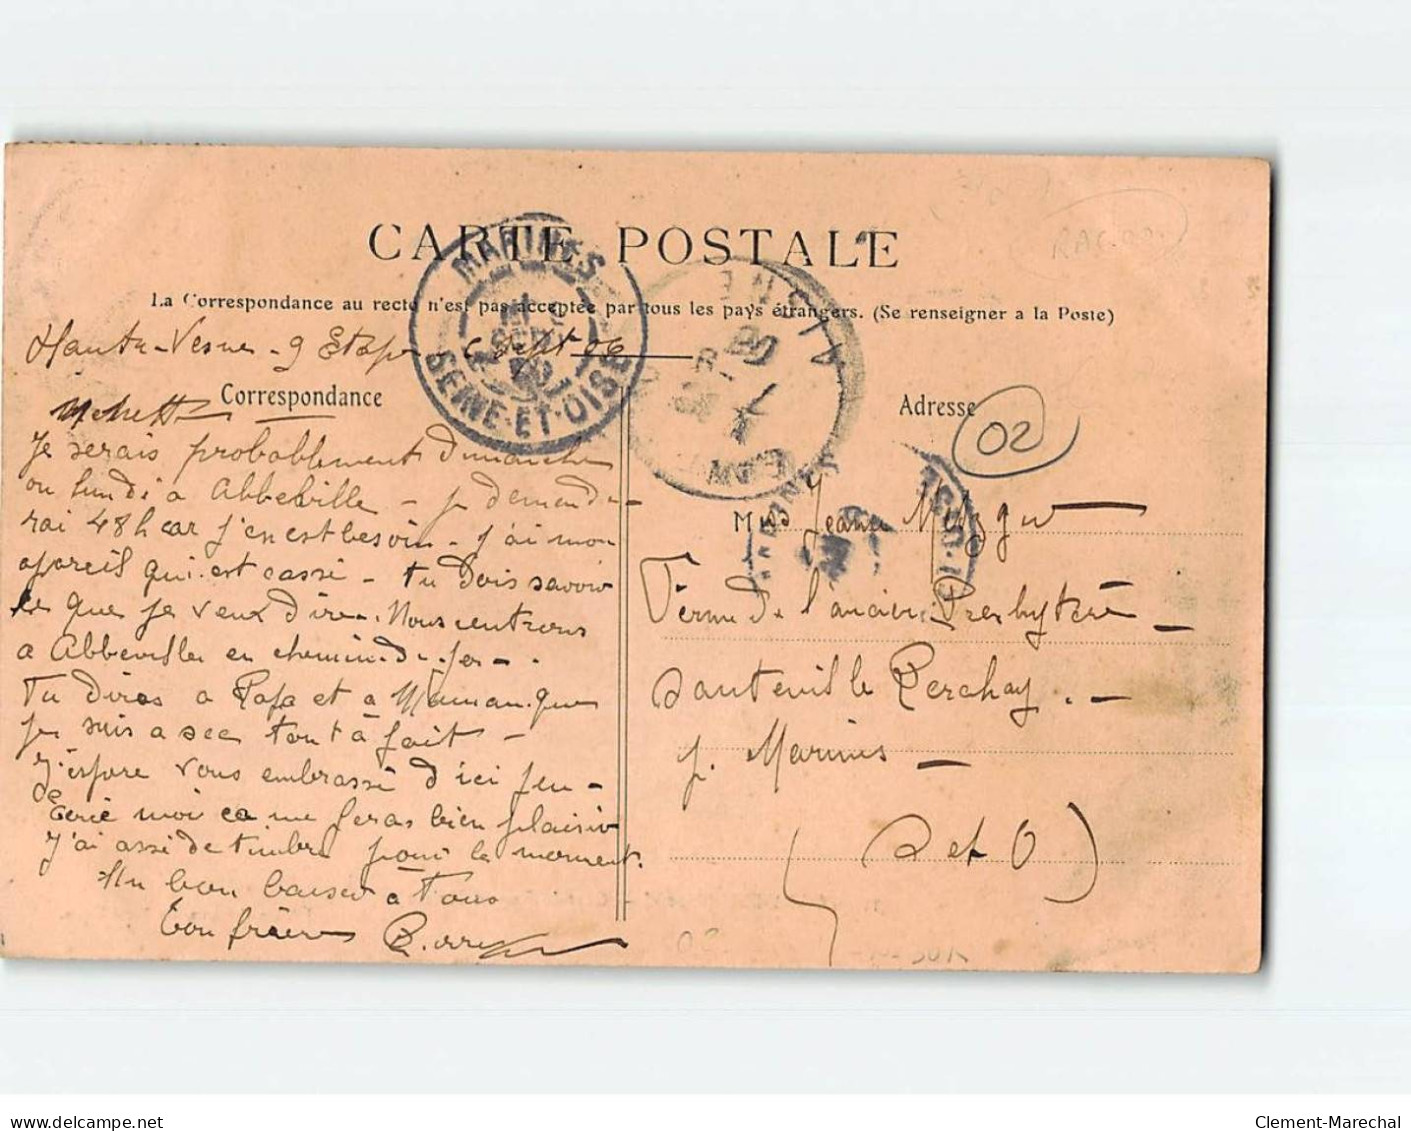 CARTE POSTALE
La Correspondance au recto n'est pas acceptée par tous les pays étrangers. (Se renseigner a la Poste)
9 Etape 6 Sept 06
Correspondance
Adresse
02
MARINES
SEINE-ET-OISE
AISNE
Je serais probablement Dimanche
ou lundi à Abbeville - je demande-
rai 48h car j'en est besoin - j'ai mon
apareil qui est cassé - tu dois savoir
ce que je veux dire. Nous rentrons
a Abbeville en chemin de fer -
Tu diras a Papa et a Maman que
je suis a sec tout à fait -
J'espère vous embrassé d'ici peu -
moi ca me feras bien plaisir
J'ai assé de timbre pour le moment.
Un bon baiser à Tous
Ton frère
Jeanne
Ferme de l'ancien Presbytère
Santeuil le Perchay. -
p. Marines -
(S et O)
Clement-Marechal